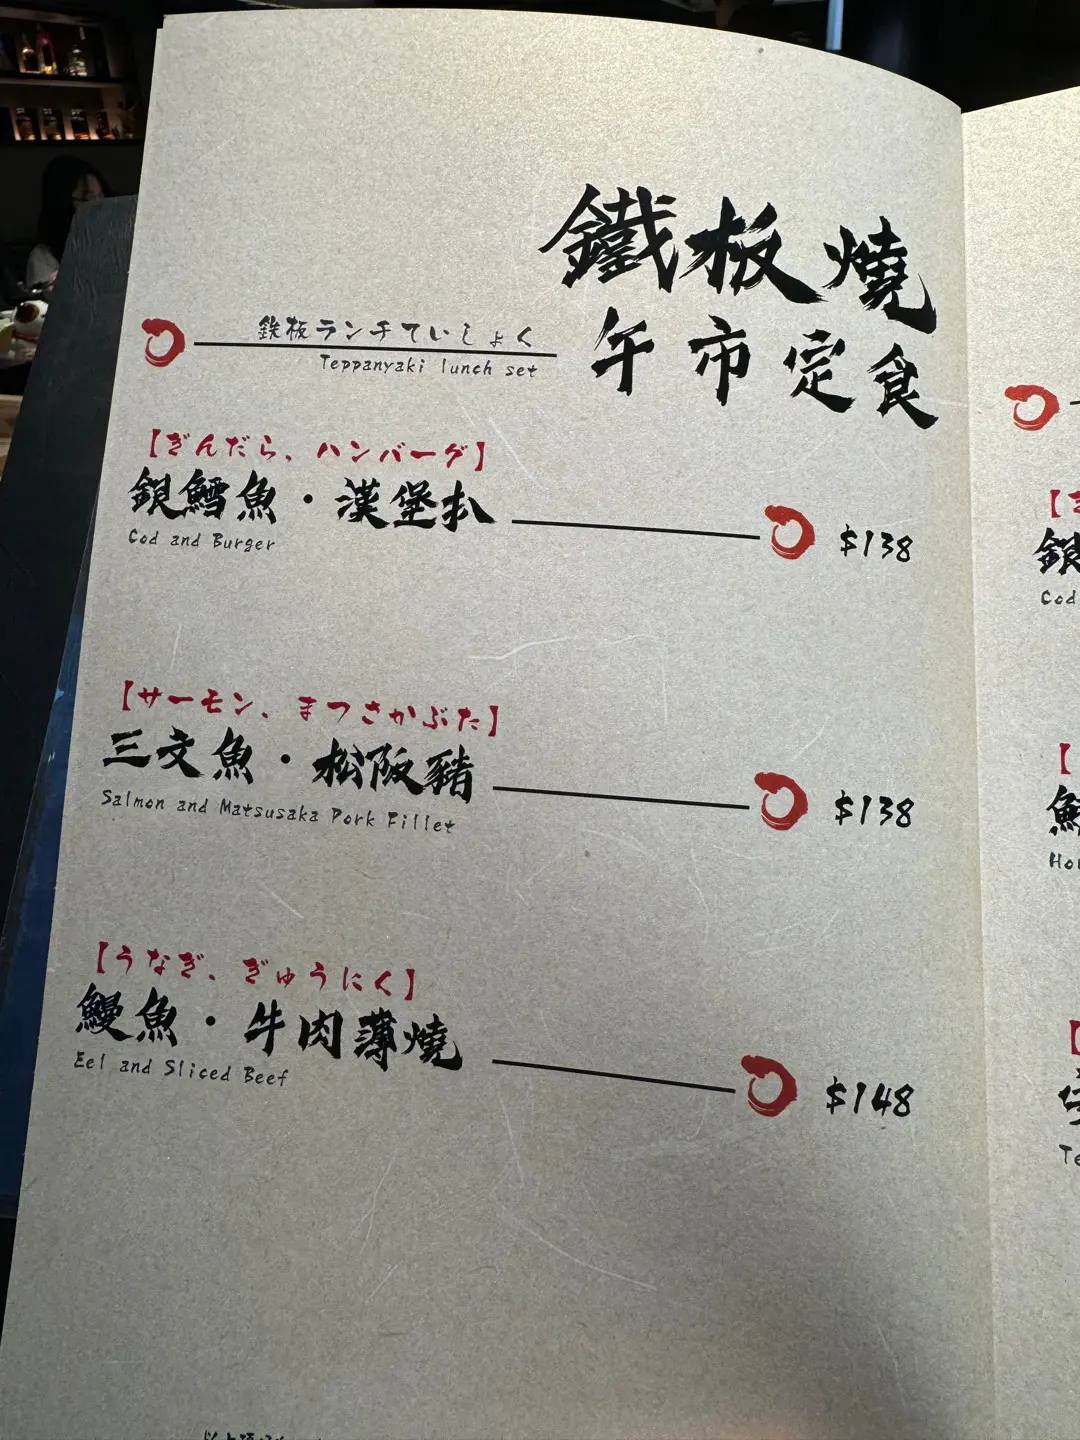 鐵板燒
午市定食
鉄板ランチていしょく
Teppanyaki lunch set
【ぎんだら、ハンバーグ】
銀鱈魚・漢堡扒
$138
Cod and Burger
【サーモン、まつさかぶた】
三文魚・松阪豬
$138
Salmon and Matsusaka Pork Fillet
【うなぎ、ぎゅうにく】
鰻魚・牛肉薄燒
$148
Eel and Sliced Beef
Cod
Ho
Te